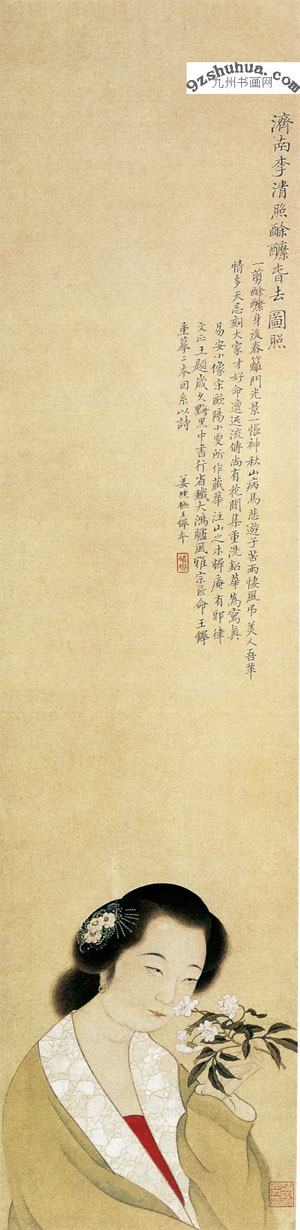 9zshuhua.com
九州书画网
濟南李清照酴醿春去圖照
一剪酴醿身後春籬門光景一悵神秋山病馬悲遊子苦雨悽風吊美人吾輩
情多天忌刻大家才好命遭迍流傳尚有挖閒集重洗鉛華為寫真
易安小像宋歐陽小雯所作藏華注山之木樨庵有邪律
文正王題歲久黝黑中書行省鐵大鴻臚風雅宗匠命王鐸
重摹二本因系以詩